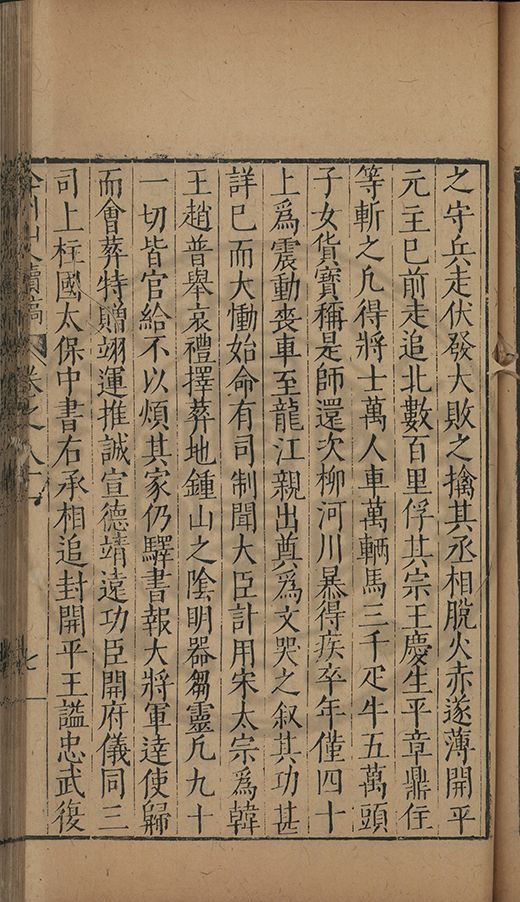 之守兵走伏發大敗之擒其丞相脫火赤遂薄開平
元主已前走追北數百里俘其宗王慶生平章鼎住
等斬之凡得將士萬人車萬輛馬三千疋牛五萬頭
子女貨寶稱是師還次柳河川暴得疾卒年僅四十
上爲震動喪車至龍江親出奠爲文哭之叙其功甚
詳已而大慟始命有司制聞大臣訃用宋太宗爲韓
王趙普舉哀禮擇葬地鍾山之陰明器芻靈凡九十
一切皆官給不以煩其家仍驛書報大將軍達使歸
而會葬特贈翊運推誠宣德靖遠功臣開府儀同三
司上柱國太保中書右丞相追封開平王諡忠武復
山人續稿
卷之八十
七